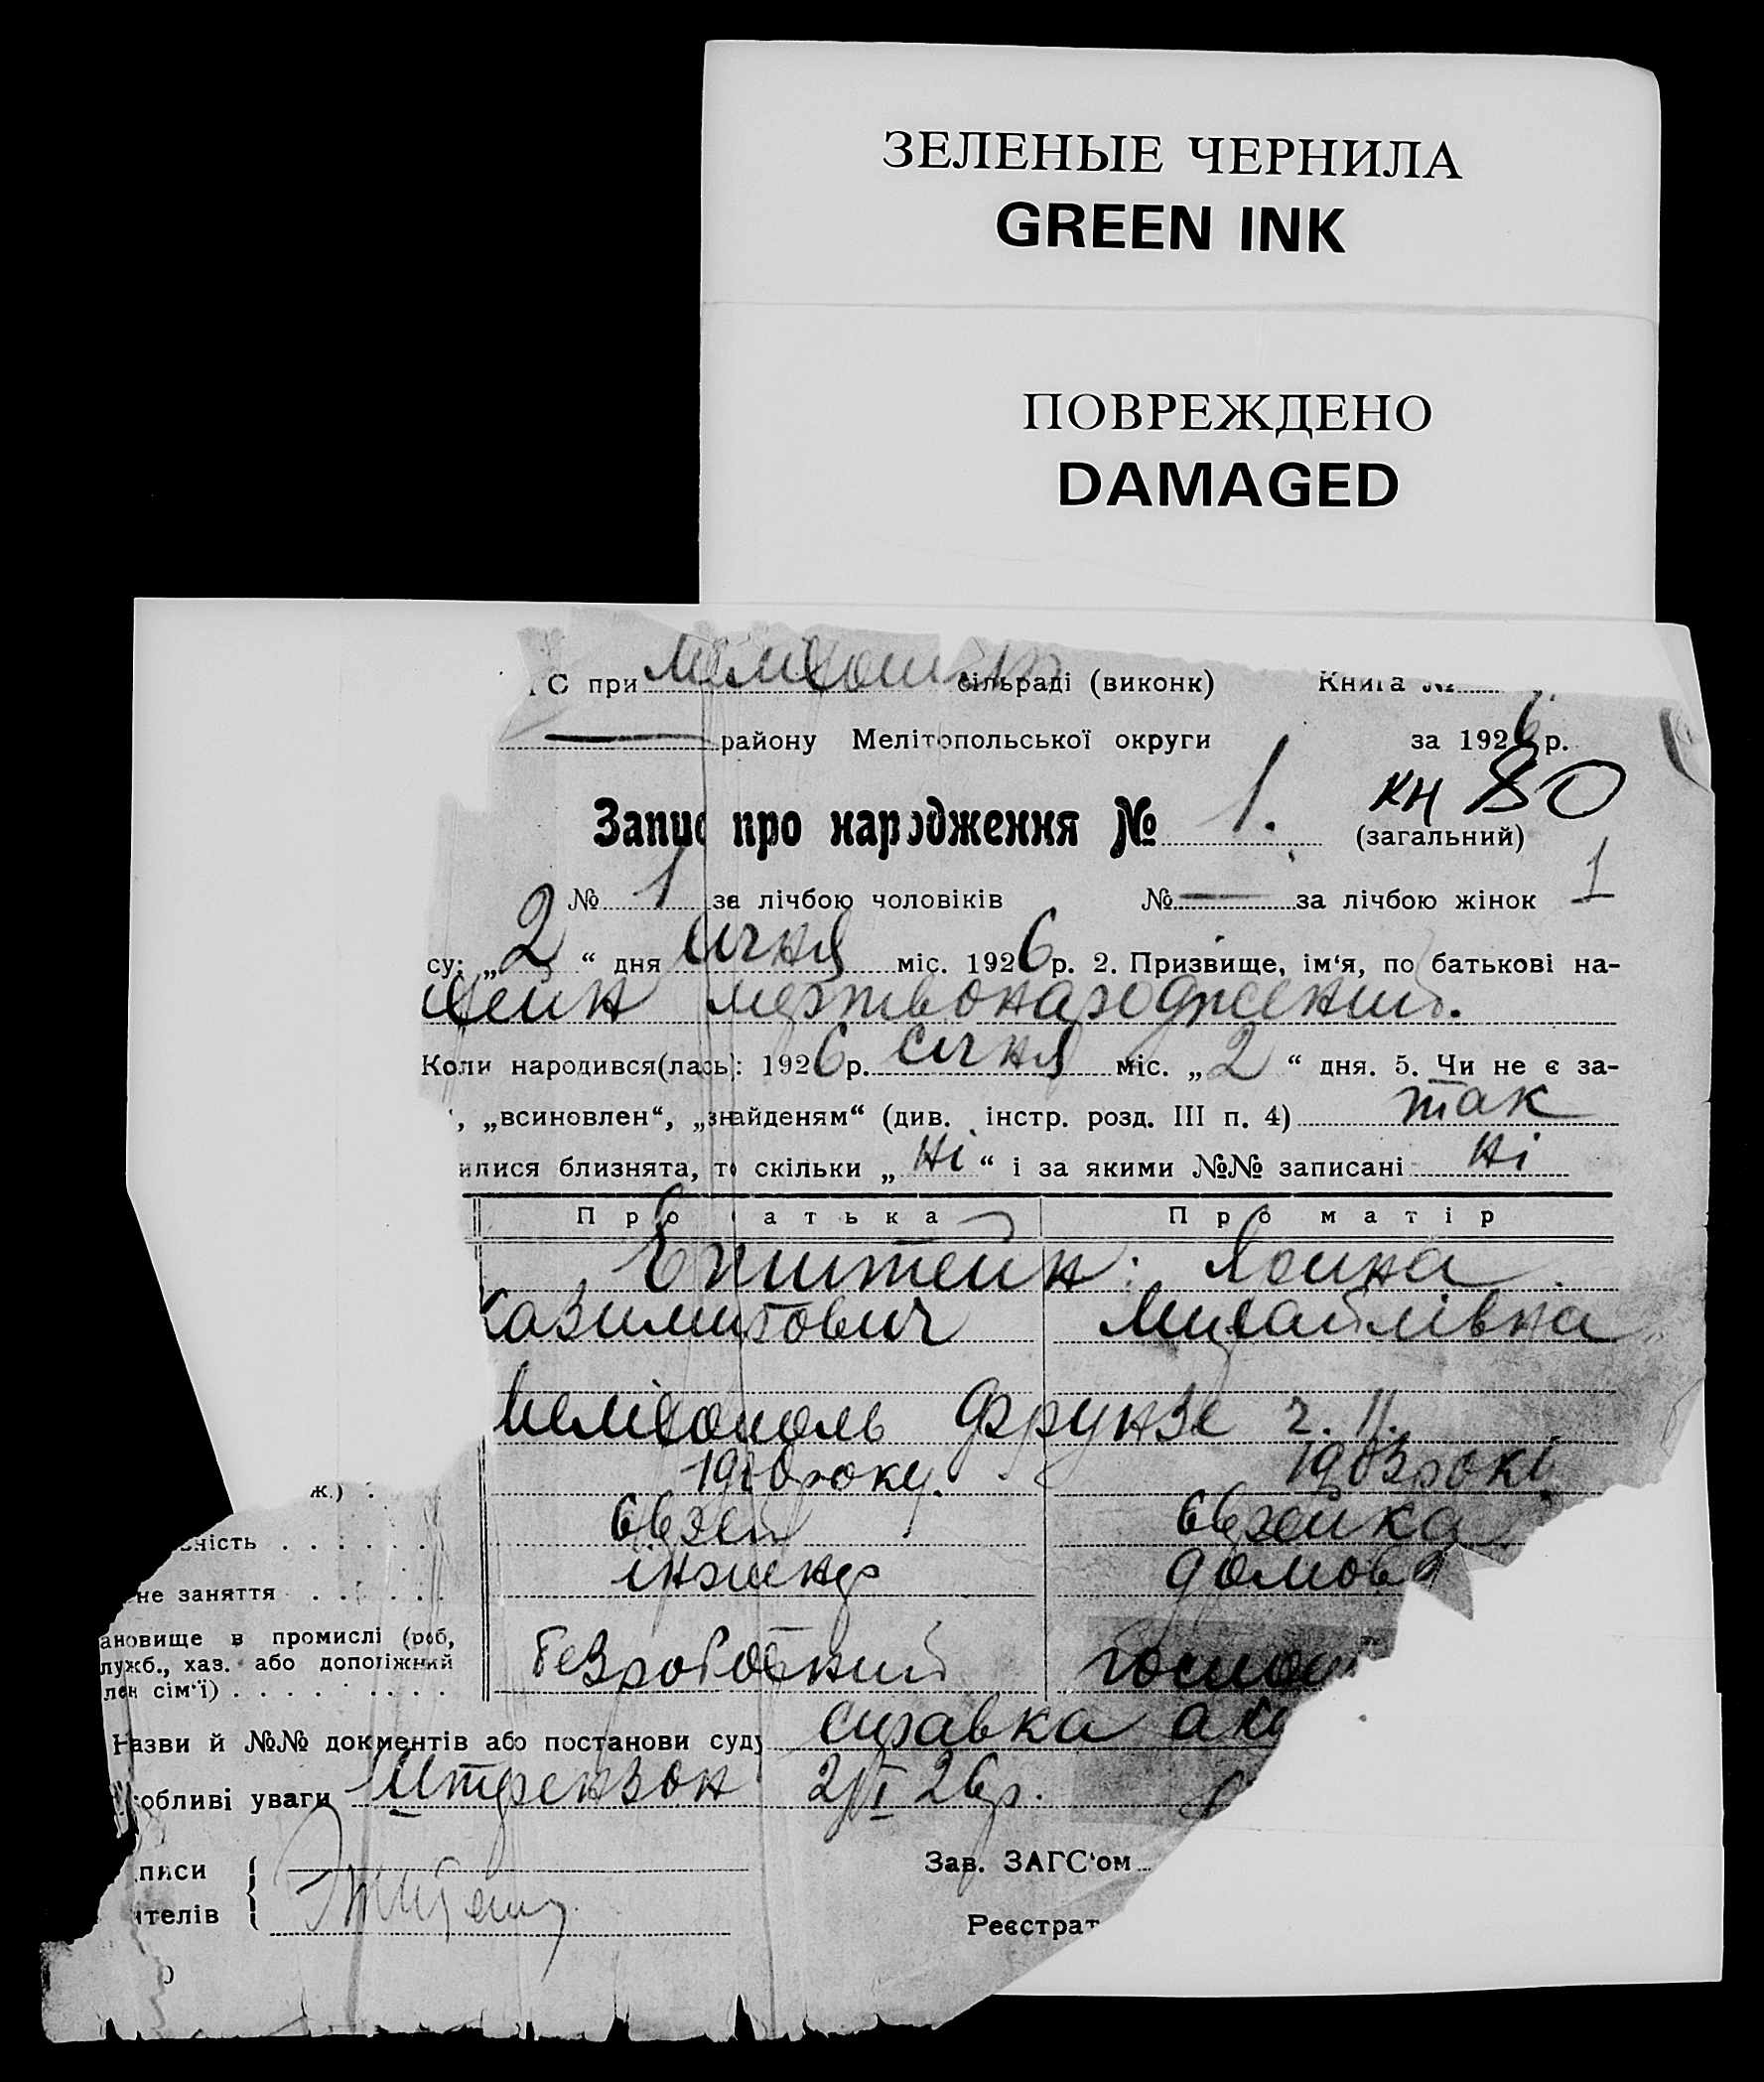 ЗЕЛЕНЫЕ ЧЕРНИЛА
GREEN INK
ПОВРЕЖДЕНО
DAMAGED
С при сільраді (виконк) Книга №
району Мелітопольської округи за 1926 р.
кн 80
Запис про народження № 1. (загальний)
№ 1 за лічбою чоловіків № — за лічбою жінок 1
су: „2“ дня січня міс. 1926 р. 2. Призвище, ім‘я, по батькові на-
мертвонароджений.
Коли народився(лась): 1926 р. січня міс. „2“ дня. 5. Чи не є за-
“, „всиновлен“, „знайденям“ (див. інстр. розд. III п. 4) так
илися близнята, то скільки „Ні“ і за якими №№ записані Ні
Про батька Про матір
Епштейн
Казимирович Михайлівна
Мелітополь Фрунзе ч. 11.
ж.) . 1903 рокі
ьність . . . . . . єврей єврейка
не заняття . . . . . . інженер домов
ановище в промислі (роб,
лужб., хаз. або допоміжний безробітний господ
лен сім‘ї) . . . . . . . . .
Назви й №№ документів або постанови суду справка аку
собливі уваги Штрензон 2/I 26 р.
писи
ителів
Зав. ЗАГС‘ом
Реєстрат